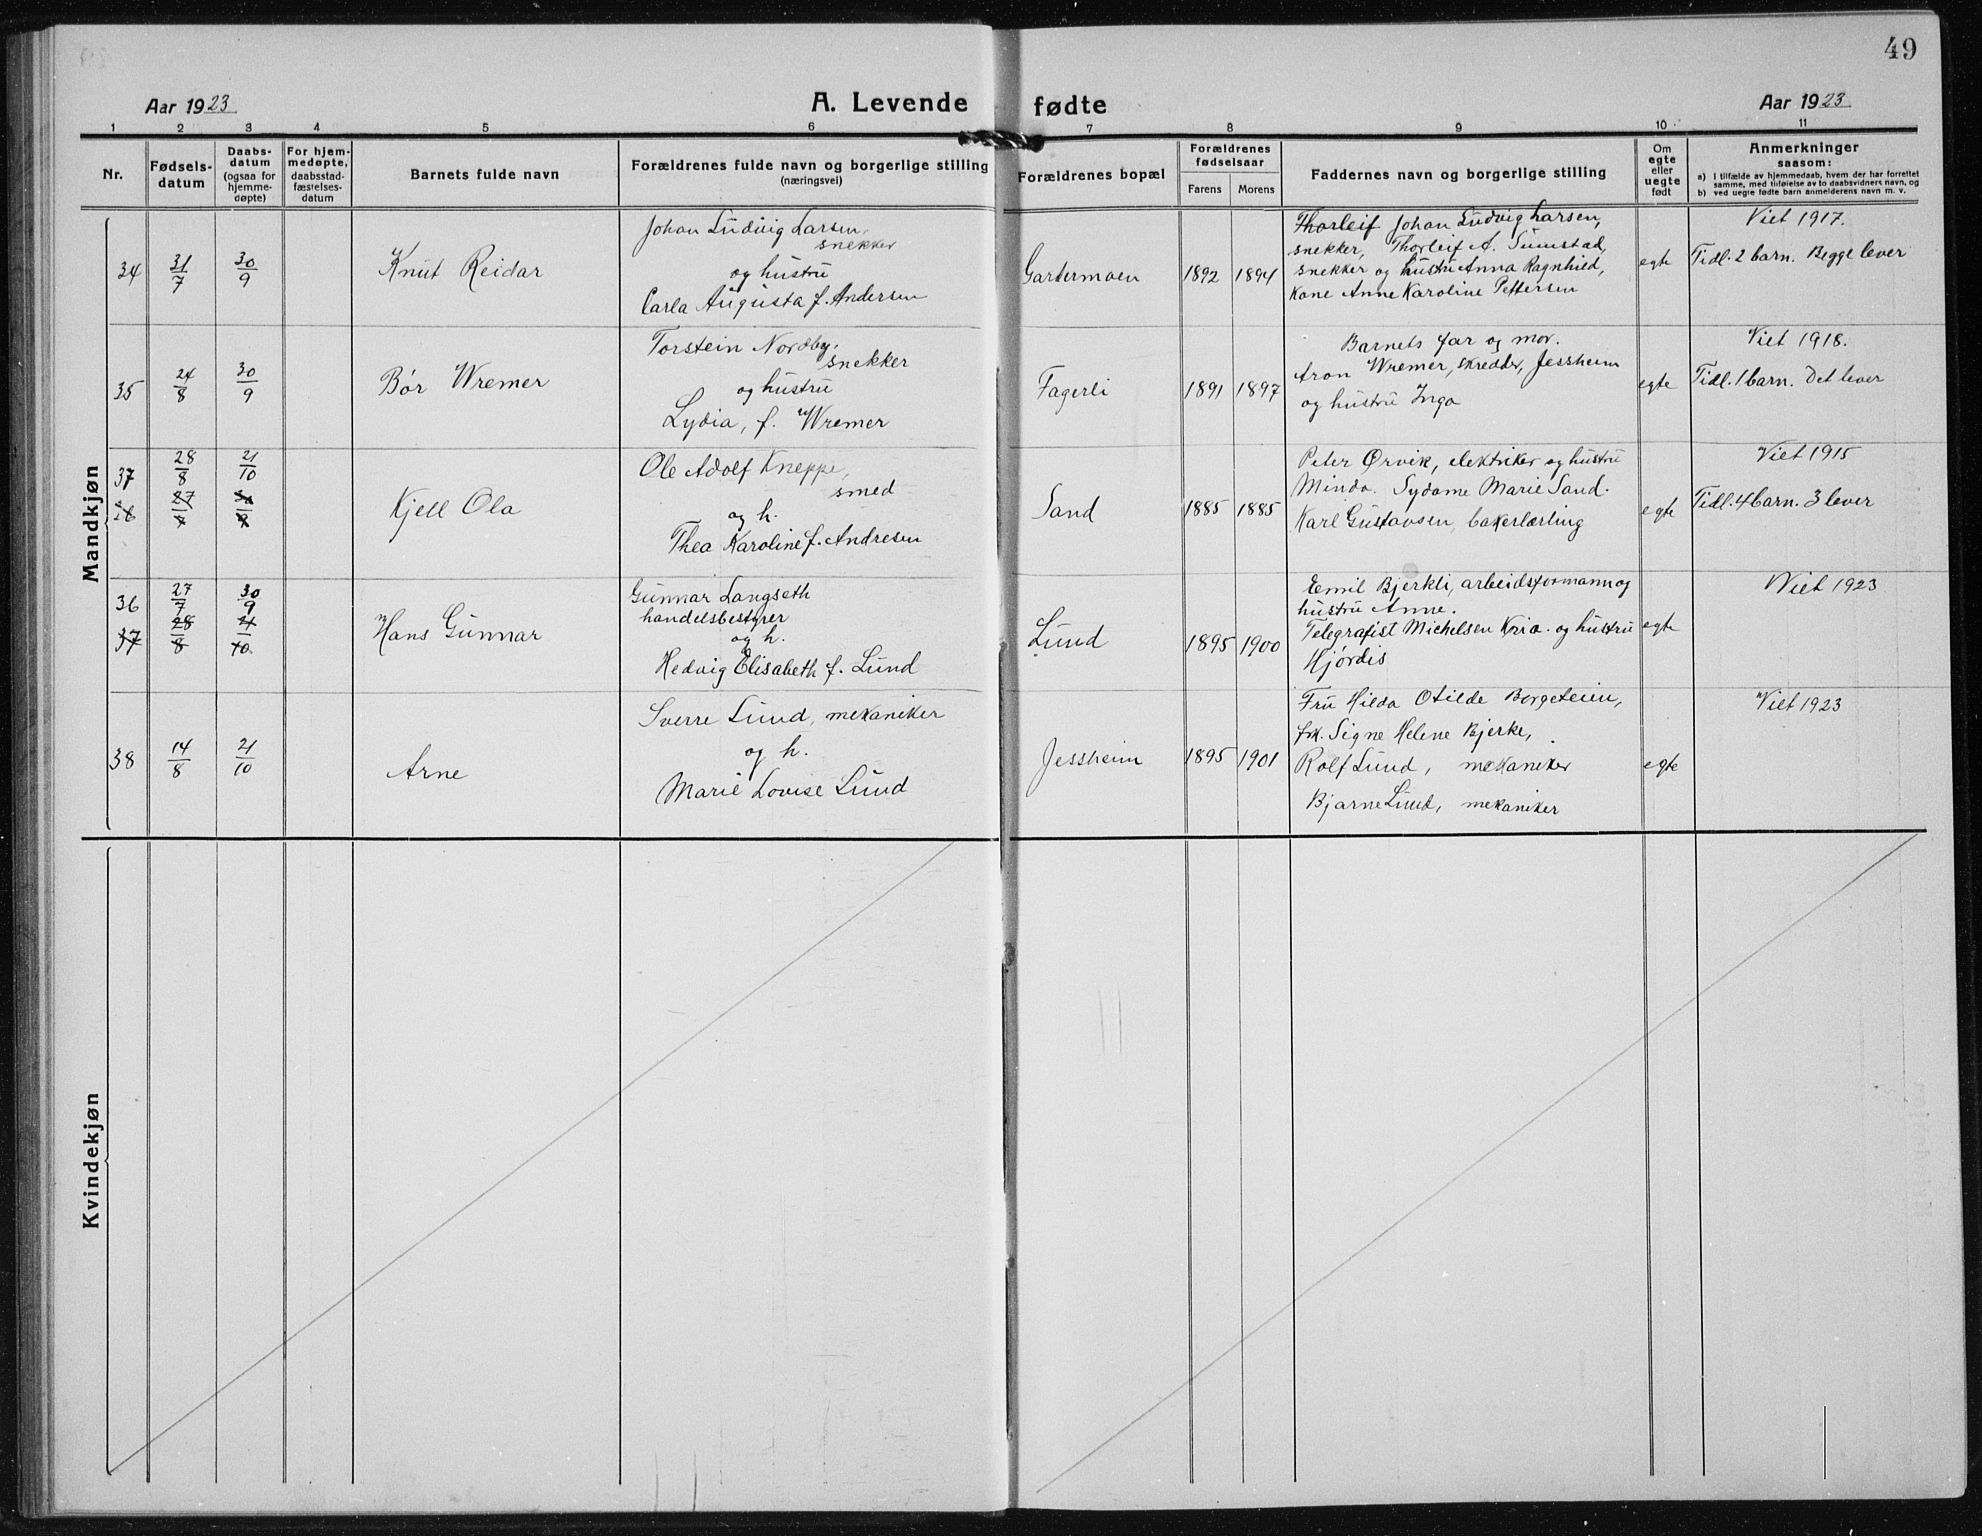 49
Aar 1923
A. Levende fødte
Aar 1923
1 2 3 4 5 6 7 8 9 10 11
Nr.
Fødsels-
datum
Daabs-
datum
(ogsaa for
hjemme-
døpte)
For hjem-
medøpte,
daabsstad-
fæstelses-
datum
Barnets fulde navn
Forældrenes fulde navn og borgerlige stilling
(næringsvei)
Forældrenes bopæl
Forældrenes
fødselsaar
Farens Morens
Faddernes navn og borgerlige stilling
Om
egte
eller
uegte
født
Anmerkninger
saasom:
a) I tilfælde av hjemmedaab, hvem der har forrettet
samme, med tilføielse av to daabsvidners navn, og
b) ved uegte fødte barn anmelderens navn m. v.
Mandkjøn
34
31/7
30/9
Knut Reidar
Johan Ludvig Larsen,
snekker
og hustru
Carla Augusta f. Andersen
Gardermoen
1892 1894
Thorleif Johan Ludvig Larsen,
snekker, Thorleif A. Sumstad,
snekker og hustru Anna Ragnhild,
Kone Anne Karoline Pettersen
egte
Viet 1917.
Tidl. 2 barn. Begge lever
35
24/8
30/9
Bør Wremer
Torstein Nordby,
snekker
og hustru
Lydia, f. Wremer
Fagerli
1891 1897
Barnets far og mor.
Aron Wremer, skredder, Jessheim
og hustru Inga
egte
Viet 1918.
Tidl. 1 barn. Det lever
37
28/8
21/10
36
27/7
30/9
Kjell Ola
Ole Adolf Kneppe,
smed
og h.
Thea Karoline f. Andresen
Sand
1885 1885
Peter Ørvik, elektriker og hustru
Minda. Sydame Marie Sand.
Karl Gustavsen, bakerlærling
egte
Viet 1915
Tidl. 4 barn. 3 lever
36
27/7
30/9
37
28/8
21/10
Hans Gunnar
Gunnar Langseth
handelsbestyrer
og h.
Hedvig Elisabeth f. Lund
Lund
1895 1900
Emil Bjerkli, arbeidsformann og
hustru Anne.
Telegrafist Michelsen Kria. og hustru
Hjördis
egte
Viet 1923
38
14/8
21/10
Arne
Sverre Lund, mekaniker
og h.
Marie Lovise Lund
Jessheim
1895 1901
Fru Hilda Otilde Borgeteien,
frk. Signe Helene Bjerke,
Rolf Lund, mekaniker
Bjarne Lund, mekaniker
egte
Viet 1923
Kvindekjøn